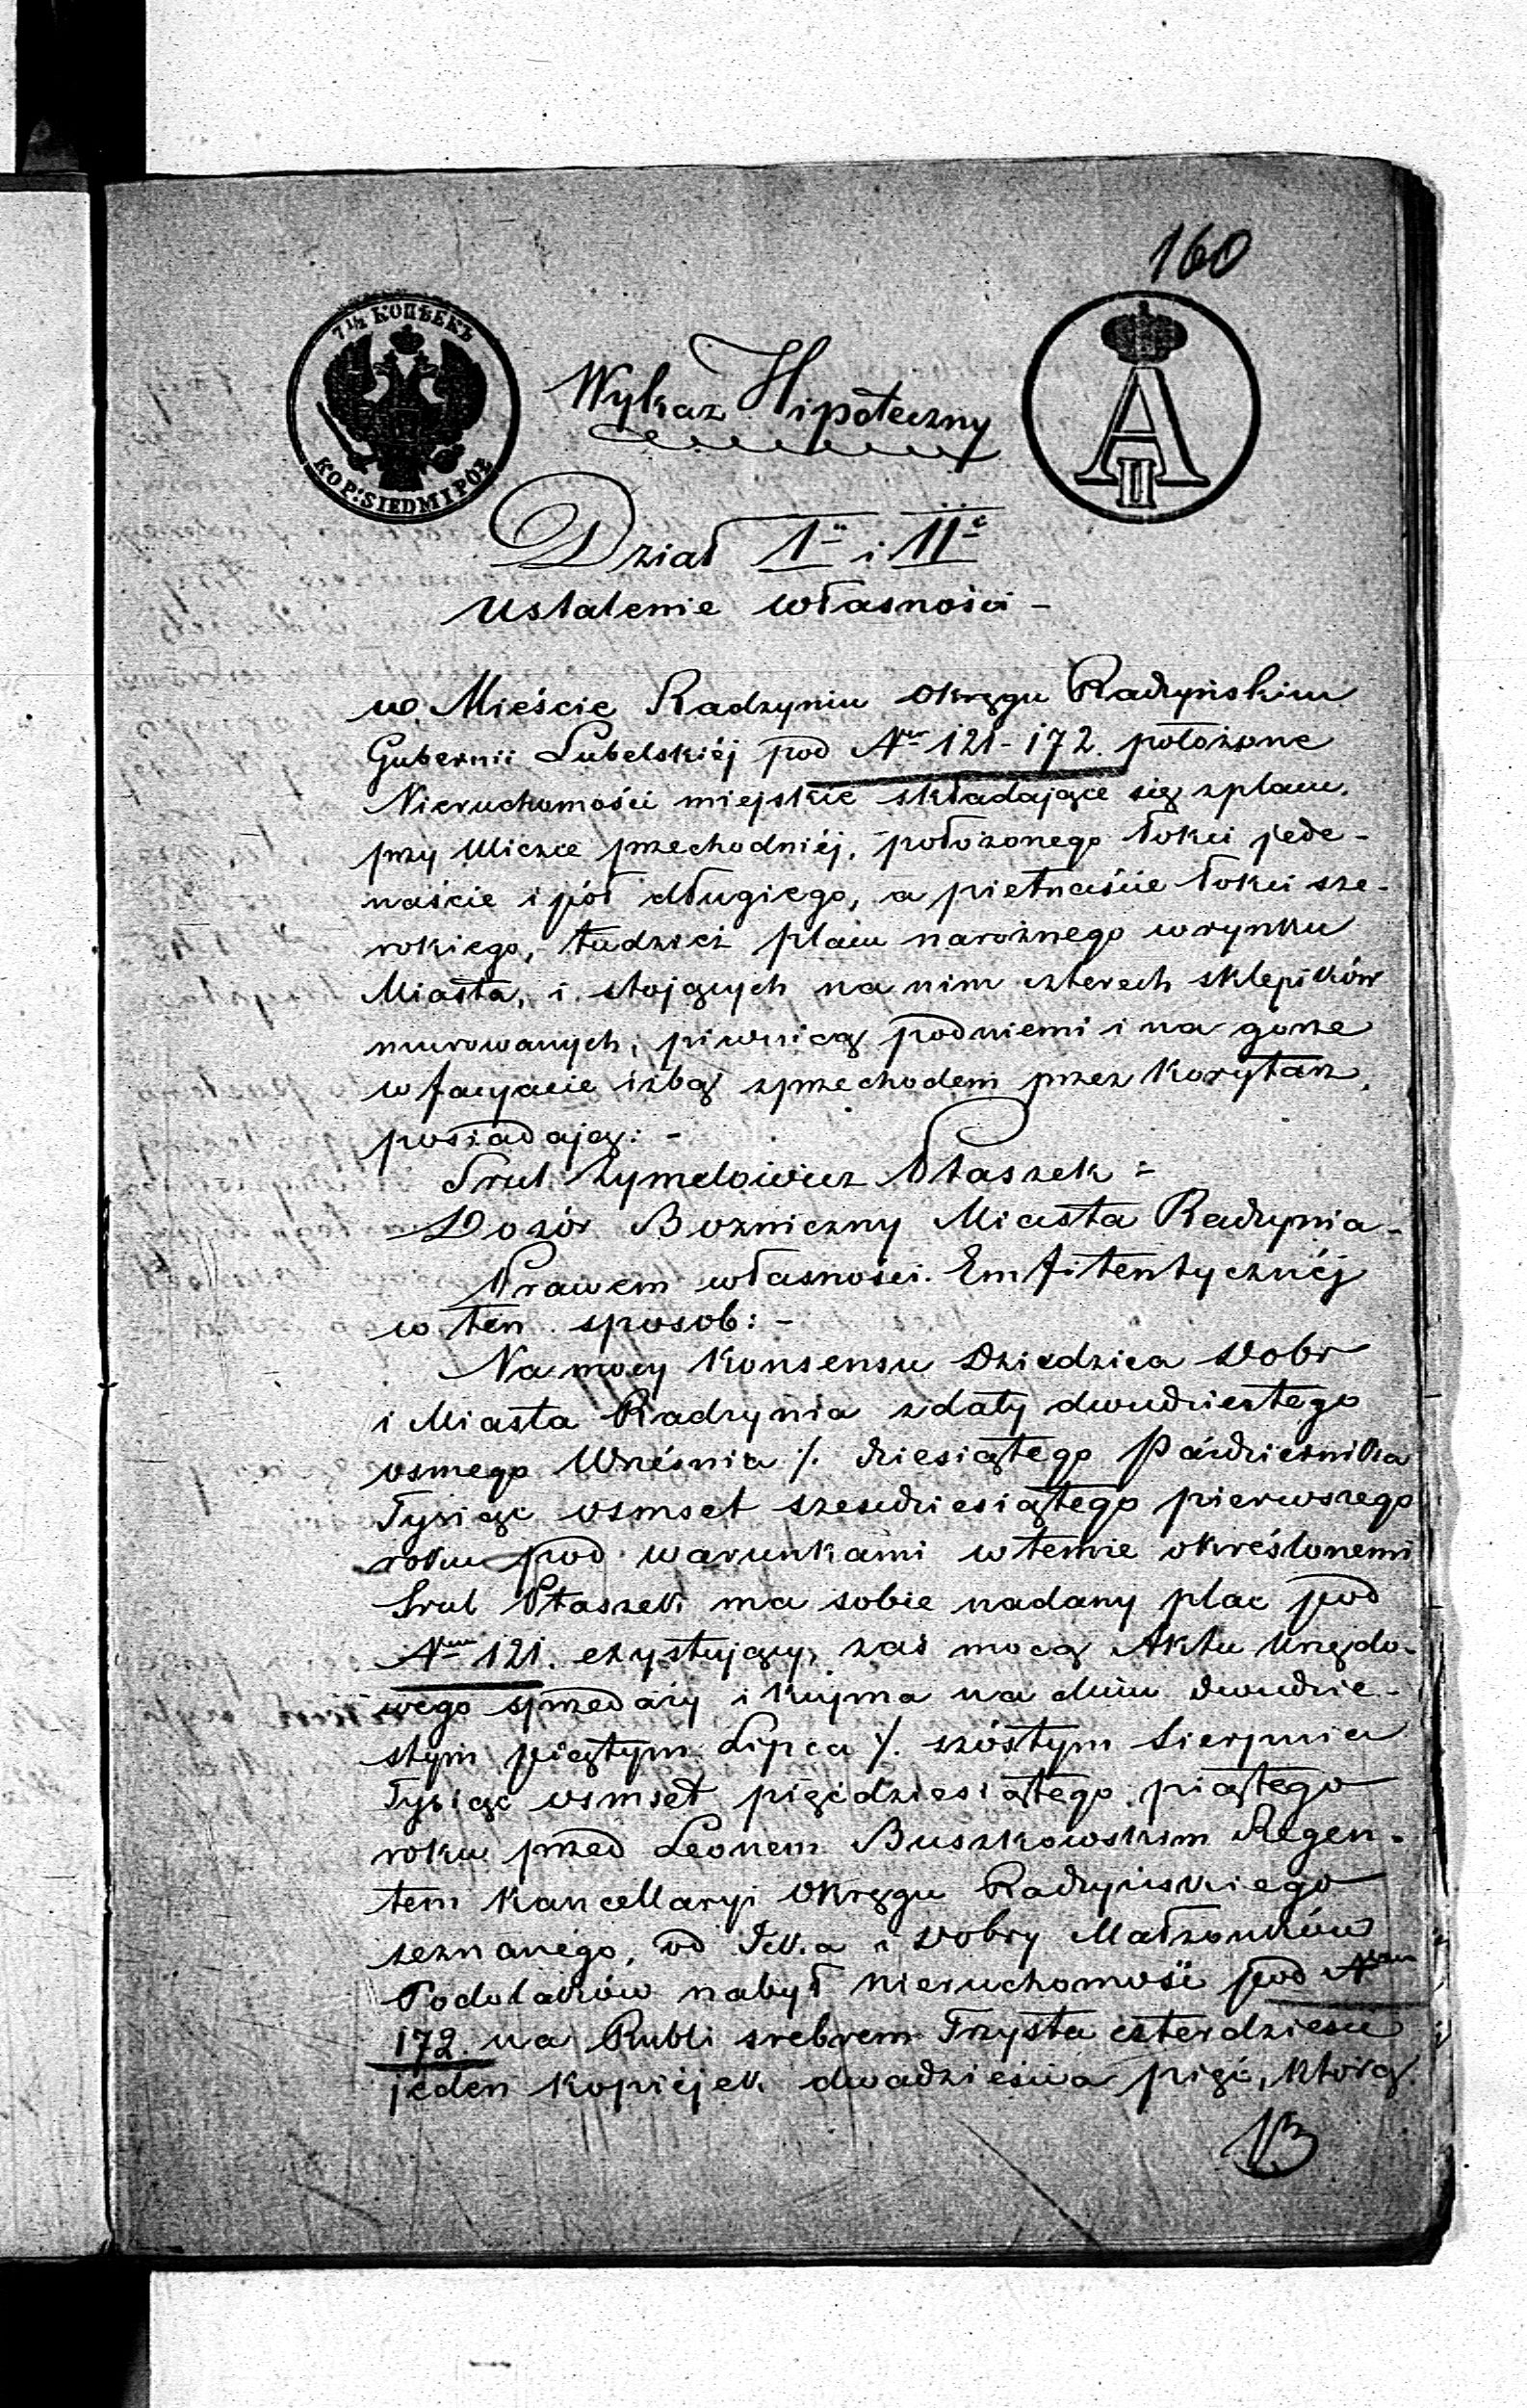 160
7½ КОПѢЕКЪ
KOP: SIEDM I PÓŁ
A II
Wykaz Hipoteczny
Dział I i II
Ustalenie własności -
w Mieście Radzyniu Okręgu Radzyńskim
Gubernii Lubelskiéj pod Nrm 121-172. położone
Nieruchomości miejskie składające się z placu
przy Uliczce przechodniéj, położonego łokci jede-
naście i pół długiego, a pietnaście łokci sze-
rokiego, tudzież placu narożnego w rynku
Miasta, i stojących na nim czterech sklepików
murowanych, piwnicą pod niemi i na górze
w facyacie izbą z przechodem przez korytarz,
posiadają: -
Srul Zymelowicz Ptaszek =
Dozór Bożniczny Miasta Radzynia -
Prawem własności Emfiteutycznéj
w ten sposob: -
Na mocy Konsensu Dziedzica Dobr
i Miasta Radzynia z daty dwudziestego
osmego Wrześnie /. dziesiątego Paździérnika
Tysiąc osmset szesćdziesiątego pierwszego
roku pod warunkami w temie określonemi
Srul Ptaszek ma sobie nadany plac pod
Nrm 121. exystujący, zaś mocą Aktu Urzędo-
wego sprzedaży i kupna na dniu dwudzie-
stym piątym Lipca /. szóstym Sierpnia
Tysiąc osmset pięćdziesiątego piątego
roku przed Leonem Buszkowskim Regen-
tem Kancellaryi Okręgu Radzyńskiego
zeznanego, od Icka i Dobry Małżonków
Podolaków nabył nieruchomość pod Nrm
172. na Rubli srebrem Trzysta czterdzieści
jeden kopiéjek dwadzieścia pięć, którą